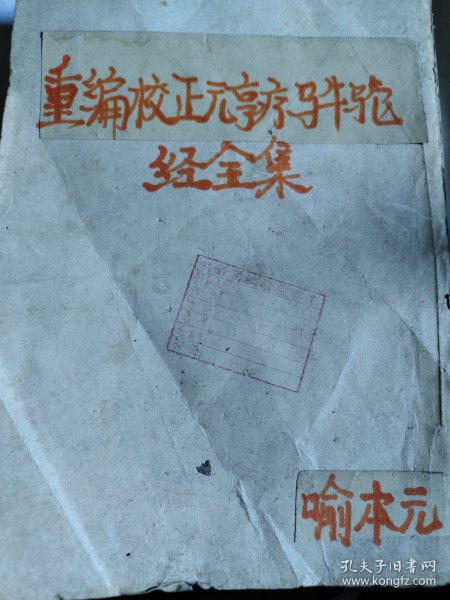 重编校正元亨疗马牛驼
经全集
喻本元
孔夫子旧书网
www.kongfz.com